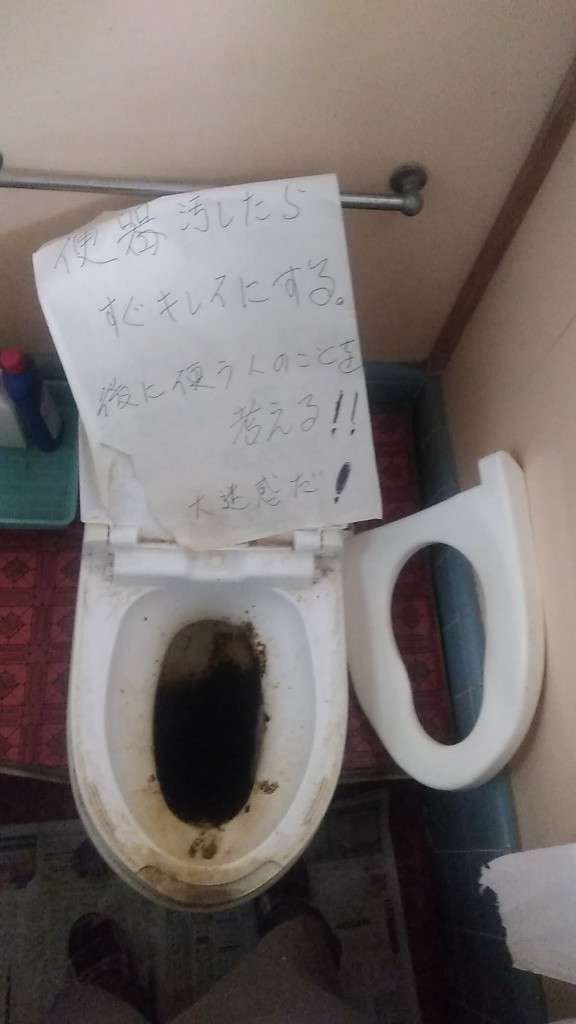 便器汚したら
すぐキレイにする。
後に使う人のことを
考える!!
大迷惑だ!